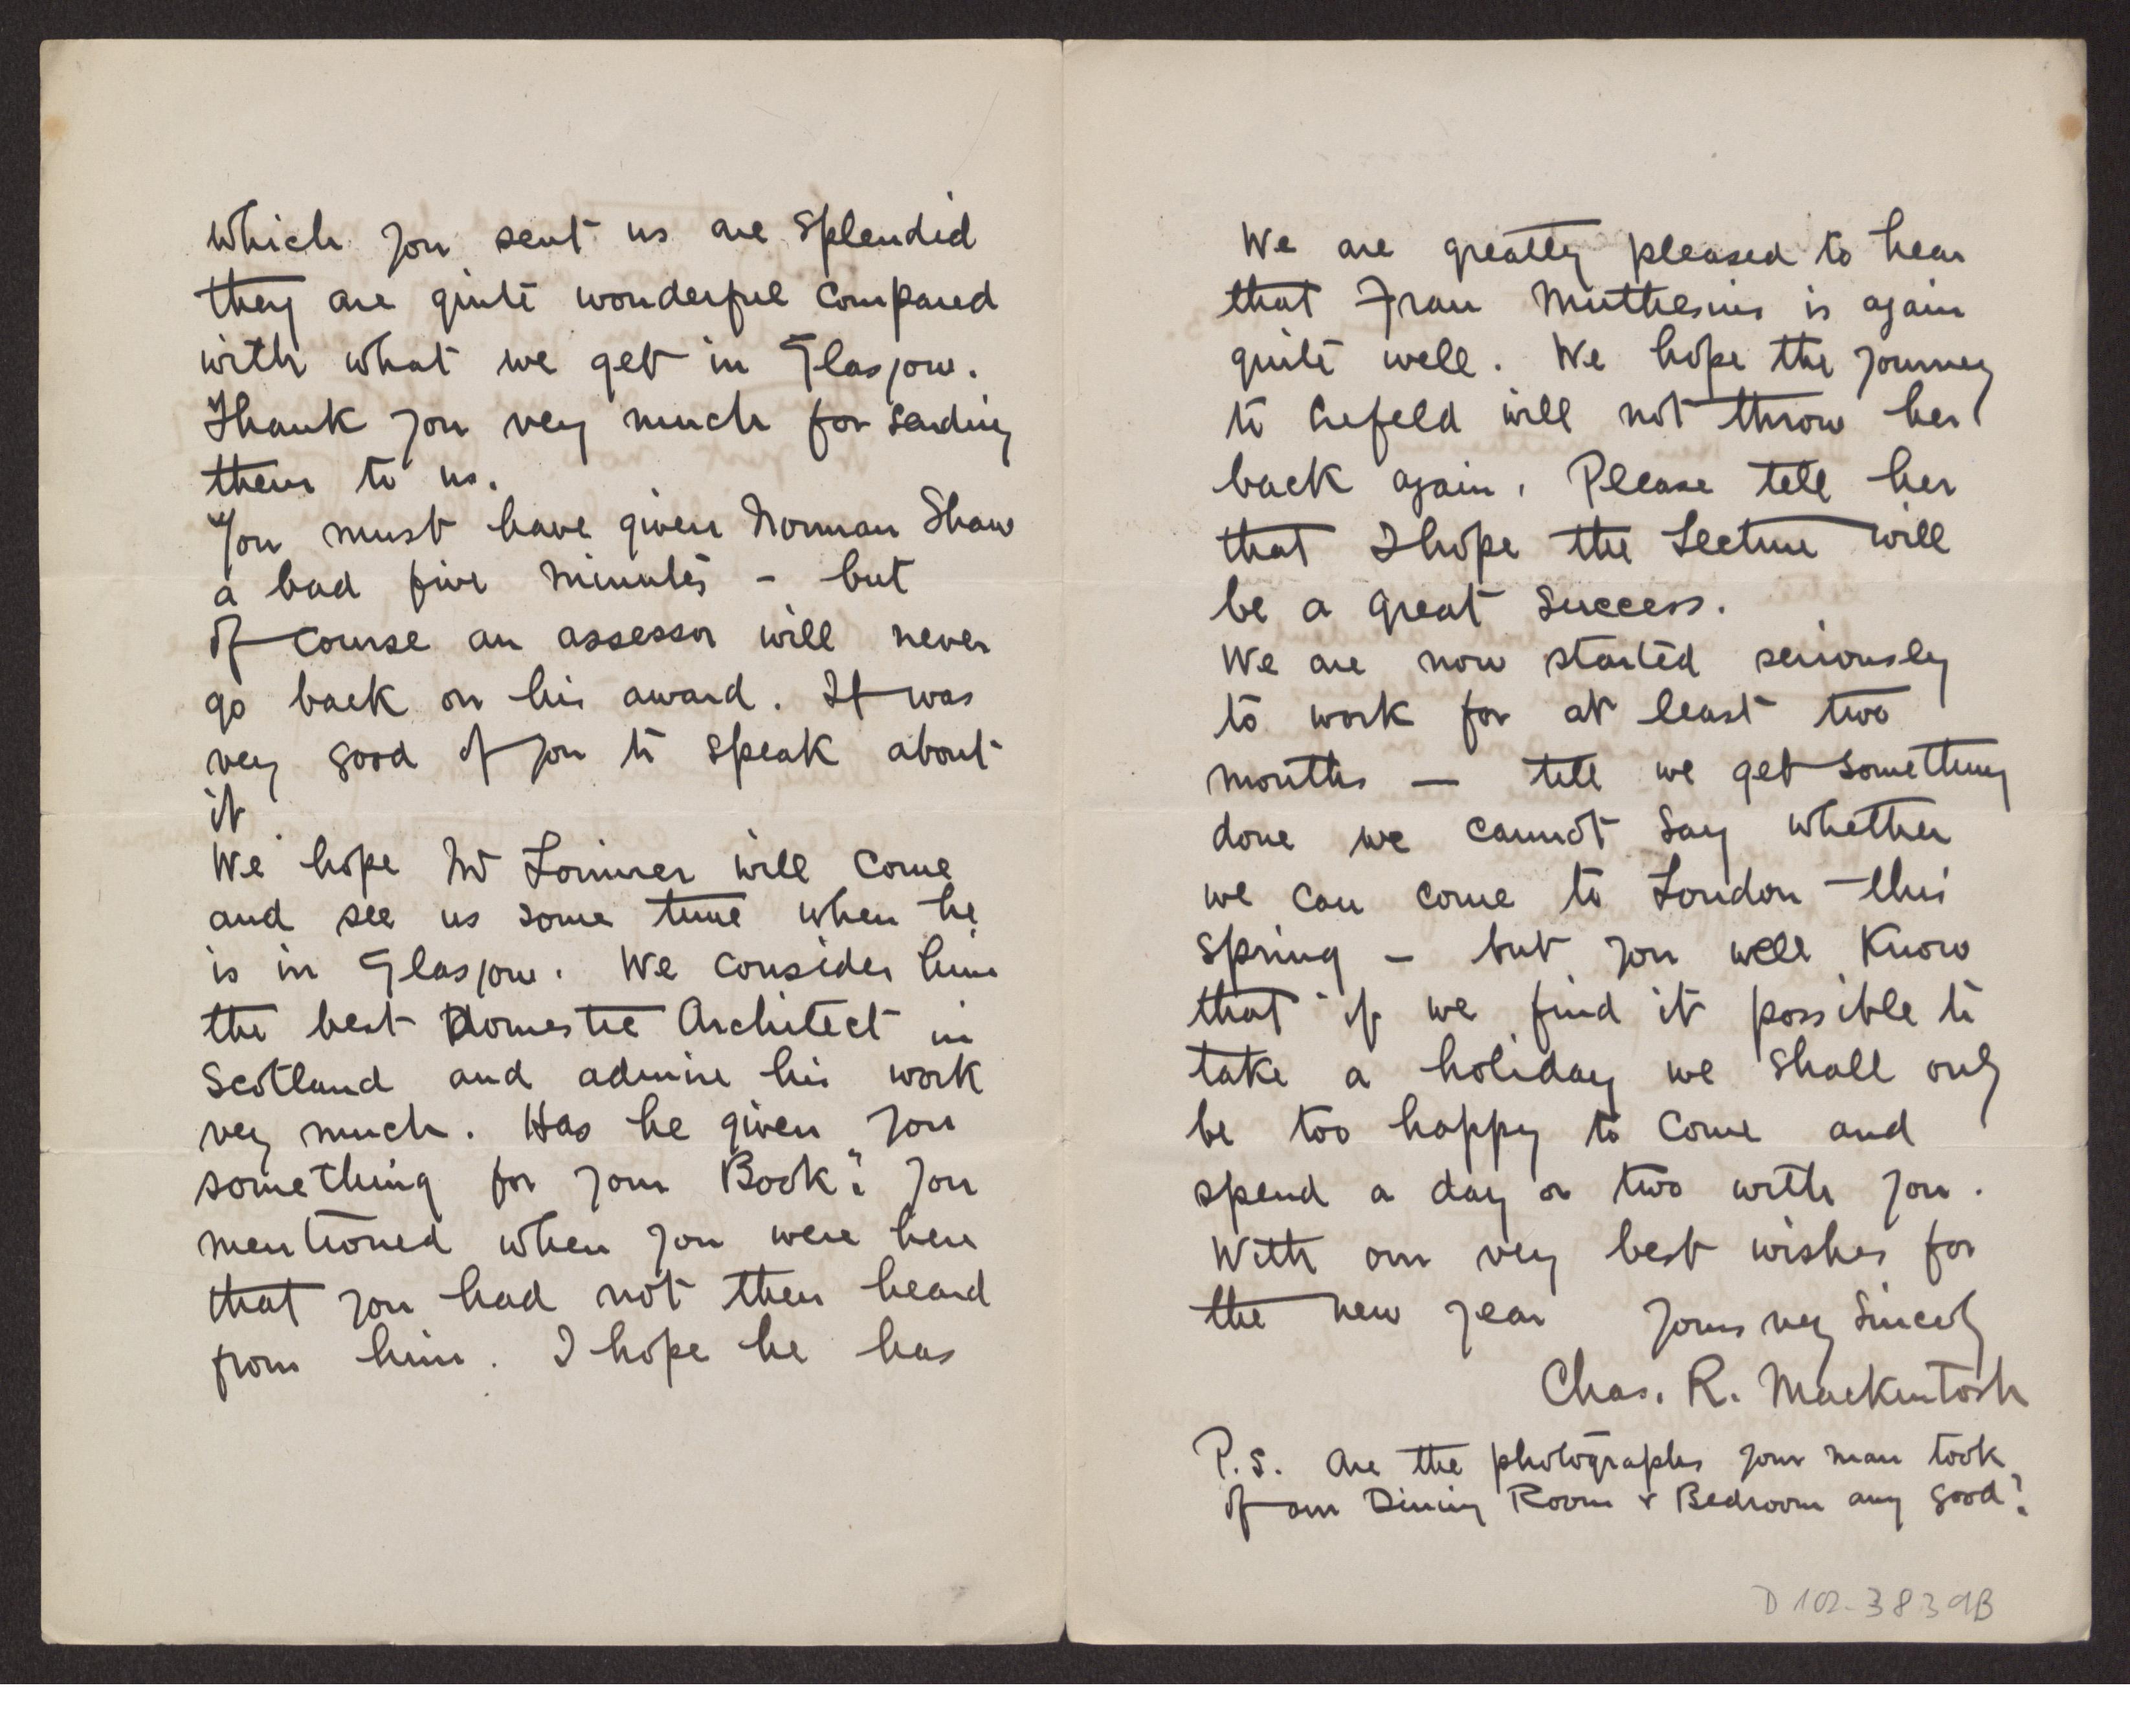 which you sent us are splendid
they are quite wonderful compared
with what we get in Glasgow.
Thank you very much for sending
them to us.
You must have given Norman Shaw
a bad five minutes – but
of course an assessor will never
go back on his award. It was
very good of you to speak about
it
We hope Mr Lorimer will come
and see us some time when he
is in Glasgow. We consider him
the best Domestic Architect in
Scotland and admire his work
very much. Has he given you
something for your Book? You
mentioned when you were here
that you had not then heard
from him. I hope he has
We are greatly pleased to hear
that Frau Muthesius is again
quite well. We hope the journey
to Crefeld will not throw her
back again. Please tell her
that I hope the Lecture will
be a great success.
We are now started seriously
to work for at least two
months – till we get something
done we cannot say whether
we can come to London this
spring – but you well know
that if we find it possible to
take a holiday we shall only
be too happy to come and
spend a day or two with you.
With our very best wishes for
the new year yours very sincerely
Chas. R. Mackintosh
P.S. Are the photographs your man took
of our Dining Room & Bedroom any good?
D 102-3839B